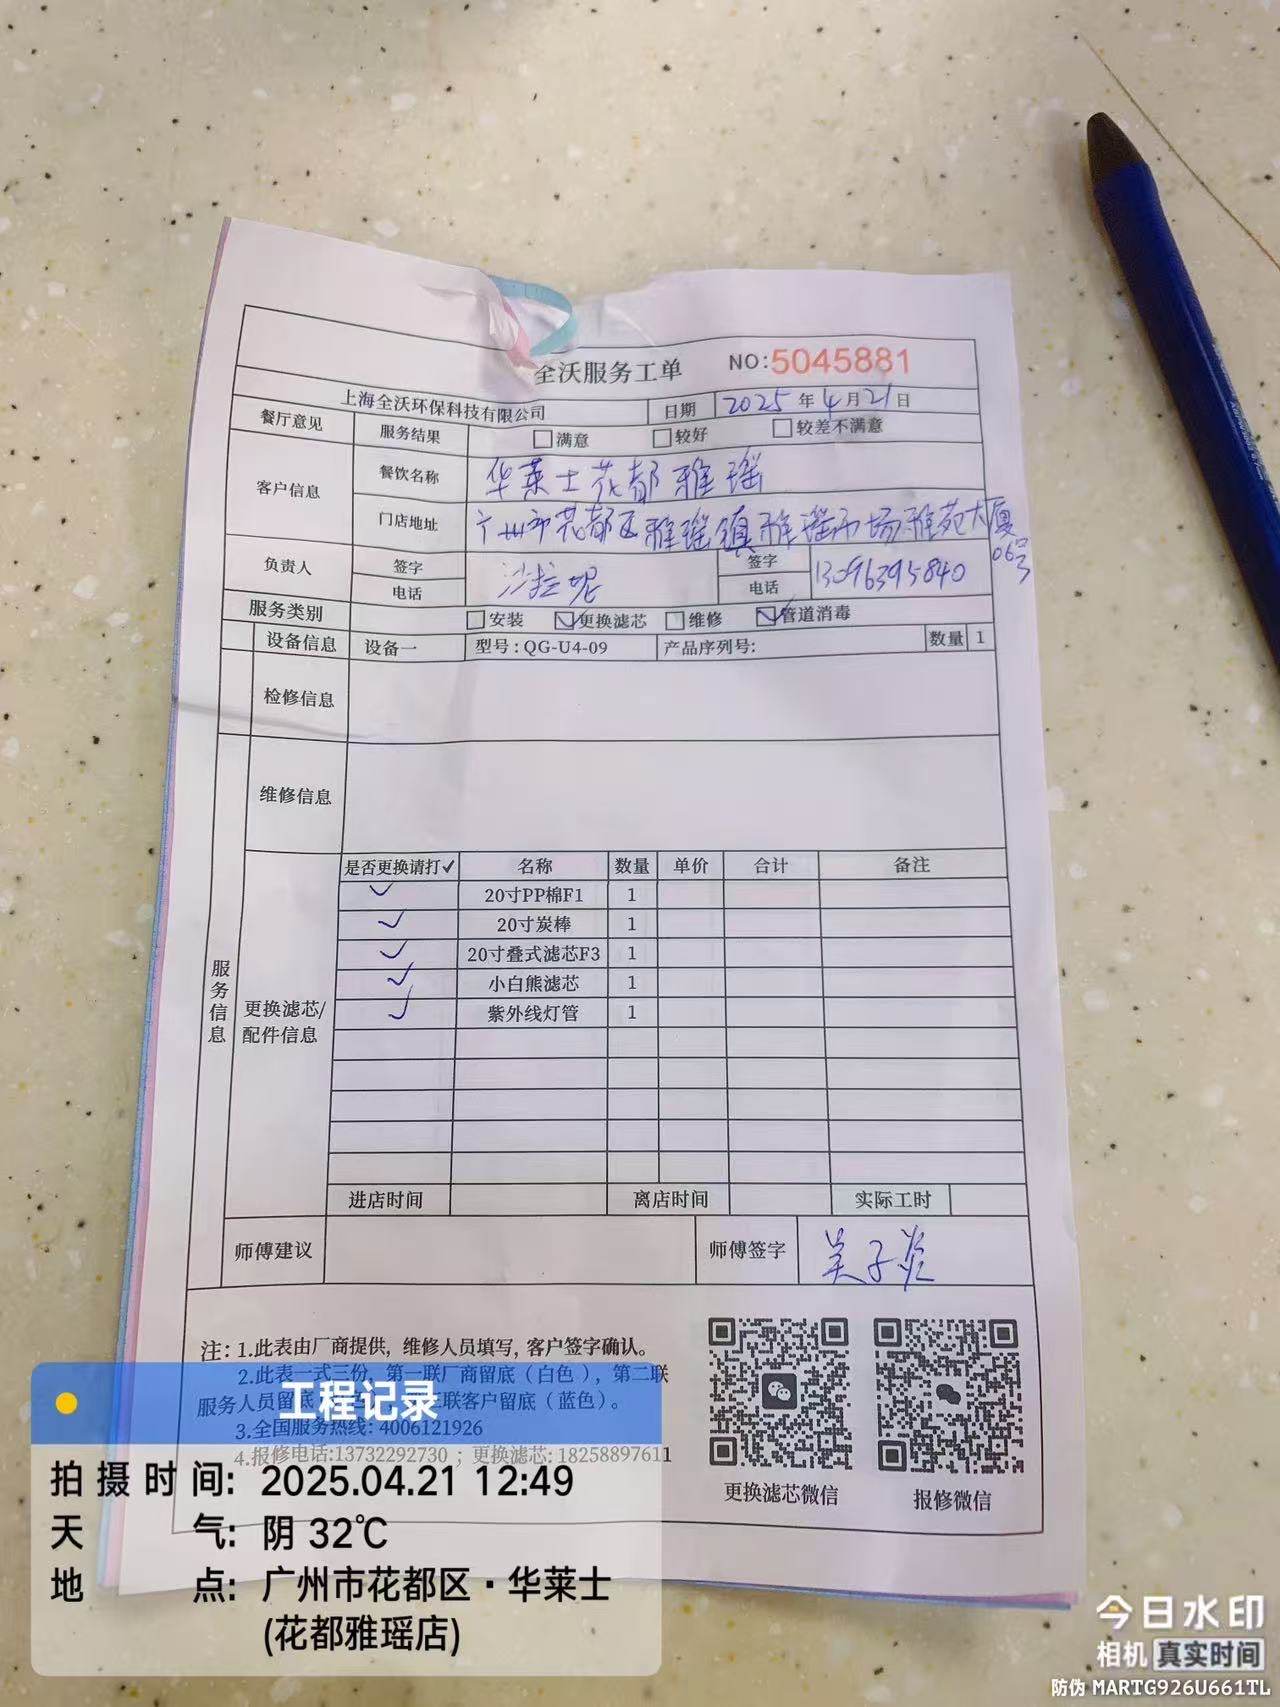 全沃服务工单 NO:5045881
上海全沃环保科技有限公司 日期 2025 年 4 月 21 日
餐厅意见 服务结果 满意 较好 较差不满意
客户信息 餐饮名称 华莱士花都雅瑶
门店地址 广州市花都区雅瑶镇雅瑶市场雅苑大厦06号
负责人 签字 沙拉妮 签字
电话 电话 13096395840
服务类别 安装 更换滤芯 维修 管道消毒
设备信息 设备一 型号:QG-U4-09 产品序列号: 数量 1
检修信息
维修信息
服务信息
更换滤芯/配件信息
是否更换请打✓ 名称 数量 单价 合计 备注
✓ 20寸PP棉F1 1
✓ 20寸炭棒 1
✓ 20寸叠式滤芯F3 1
✓ 小白熊滤芯 1
✓ 紫外线灯管 1
进店时间 离店时间 实际工时
师傅建议 师傅签字 吴子炎
注: 1.此表由厂商提供, 维修人员填写, 客户签字确认。
2.此表一式三份, 第一联厂商留底（白色）, 第二联
服务人员留底 联客户留底（蓝色）。
3.全国服务热线: 4006121926
4.报修电话:13732292730 ; 更换滤芯: 18258897611
更换滤芯微信 报修微信
工程记录
拍摄时间: 2025.04.21 12:49
天气: 阴 32℃
地点: 广州市花都区·华莱士
(花都雅瑶店)
今日水印
相机 真实时间
防伪 MARTG926U661TL